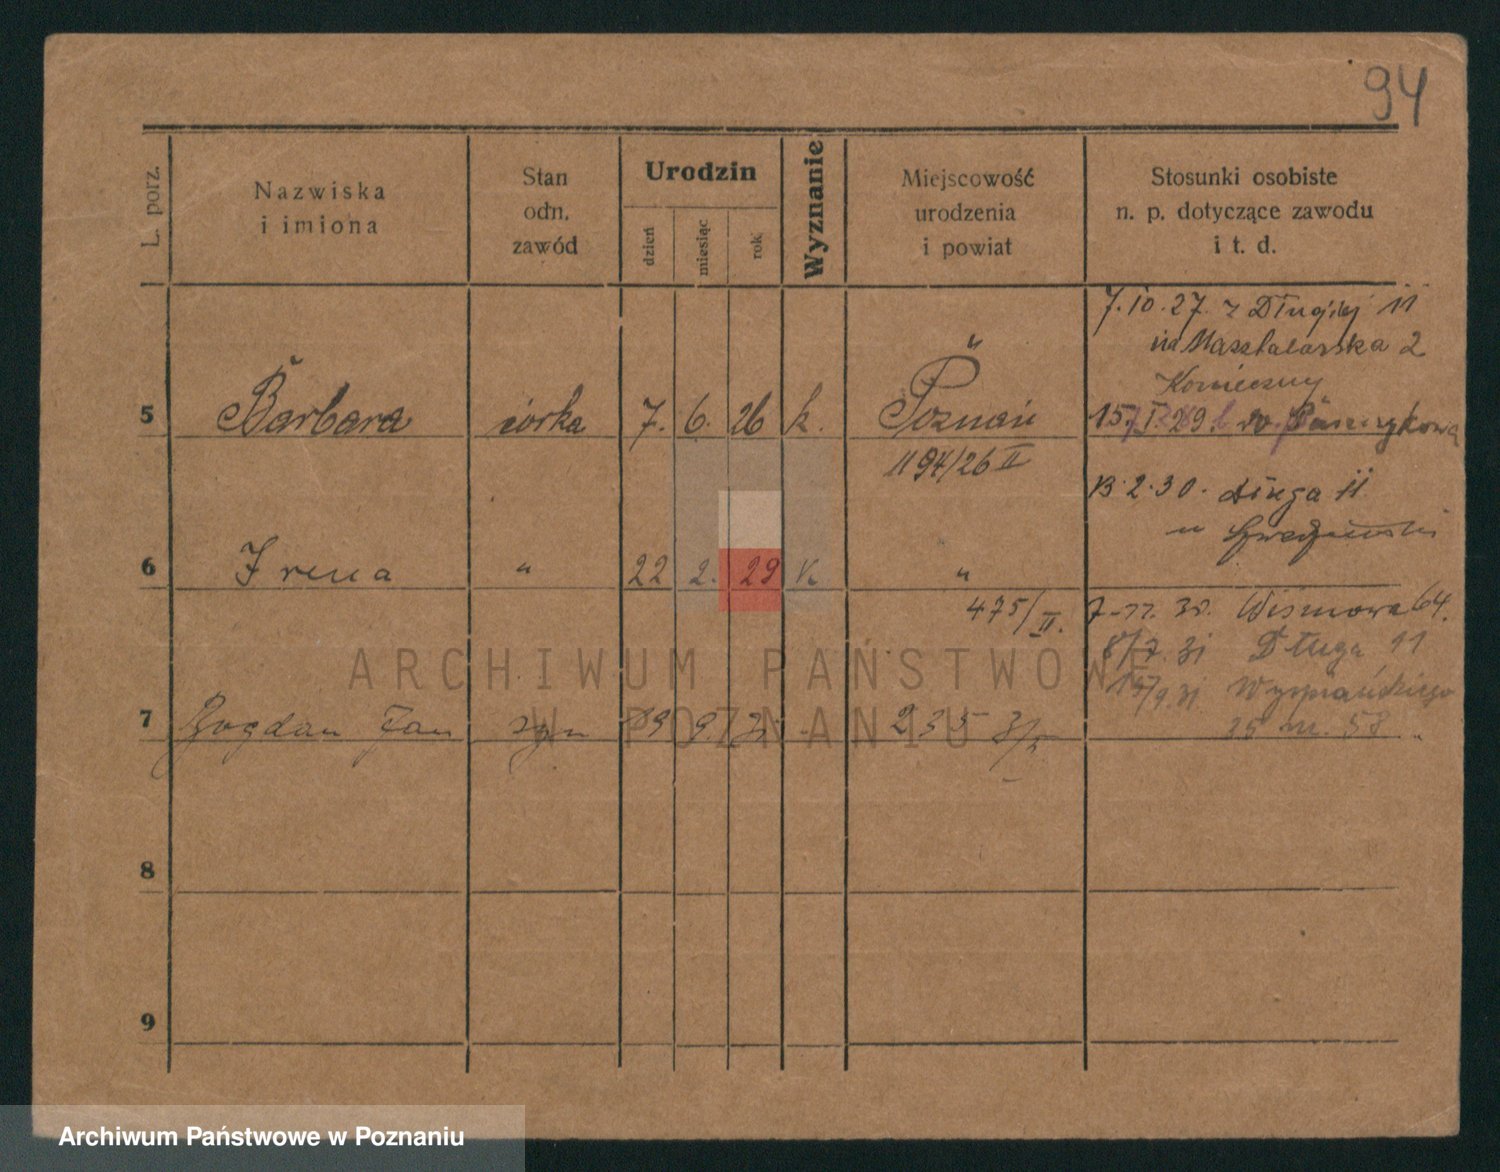 94
L. porz.
Nazwiska
i imiona
Stan
odn.
zawód
Urodzin
dzień
miesiąc
rok
Wyznanie
Miejscowość
urodzenia
i powiat
Stosunki osobiste
n. p. dotyczące zawodu
i t. d.
7.10.27. z Długiej 11
na Masztalarska 2
Konieczny
5 Barbara córka 7. 6. 26 k. Poznań
15. I. 29.
1194/26 II
13.2.30. Długa 11
6 Irena " 22 2. 29 k. "
475/II.
7.11.30. Wiśniowa 64.
8/7.31 Długa 11
9.31 Wyspiańskiego
7 Bogdan Jan syn 9. 31 235
25 m. 58.
8
9
ARCHIWUM PAŃSTWOWE
W POZNANIU
Archiwum Państwowe w Poznaniu